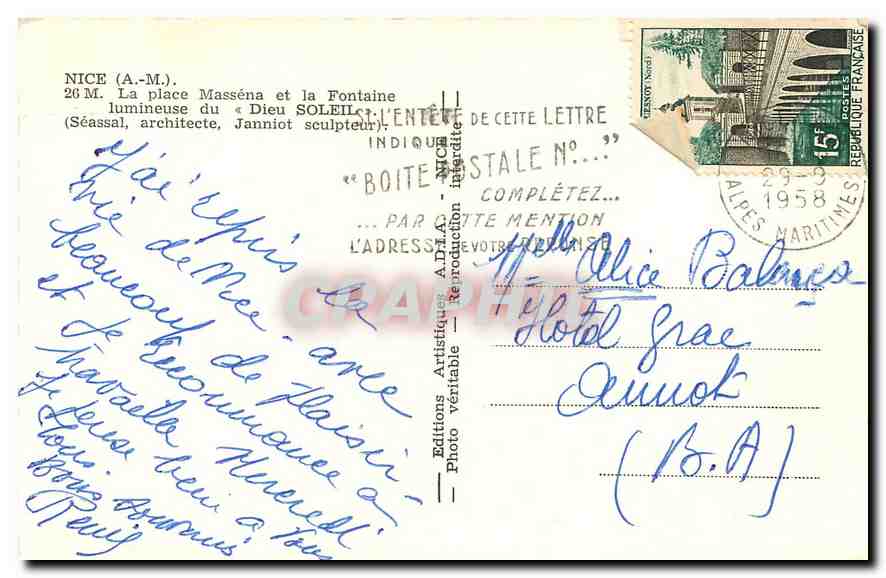 NICE (A.-M.).
26 M. La place Masséna et la Fontaine
lumineuse du « Dieu SOLEIL ».
(Séassal, architecte, Janniot sculpteur).
SI L'ENTÊTE DE CETTE LETTRE
INDIQUE
"BOITE POSTALE N°..."
COMPLÉTEZ...
...PAR CETTE MENTION
L'ADRESSE DE VOTRE RÉPONSE
QUESNOY (Nord)
15F
POSTES
REPUBLIQUE FRANÇAISE
29-9
1958
ALPES MARITIMES
J'ai repris la
vie de Nice avec
beaucoup de plaisir
et je recommence à
travailler Mercredi
Je pense bien à vous
tous.
Bons souvenirs
— Editions Artistiques A.D.I.A. - NICE —
— Photo véritable — Reproduction interdite —
CPAPHIL
Melle Alice
Hotel Grac
Annot
(B.A)